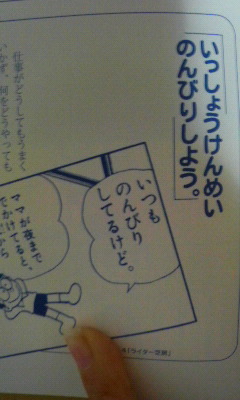 いっしょうけんめい
のんびりしよう。
仕事がどうしてもうまく
いかず、何をどうやっても
いつも
のんびり
してるけど。
ママが夜まで
でかけてると、